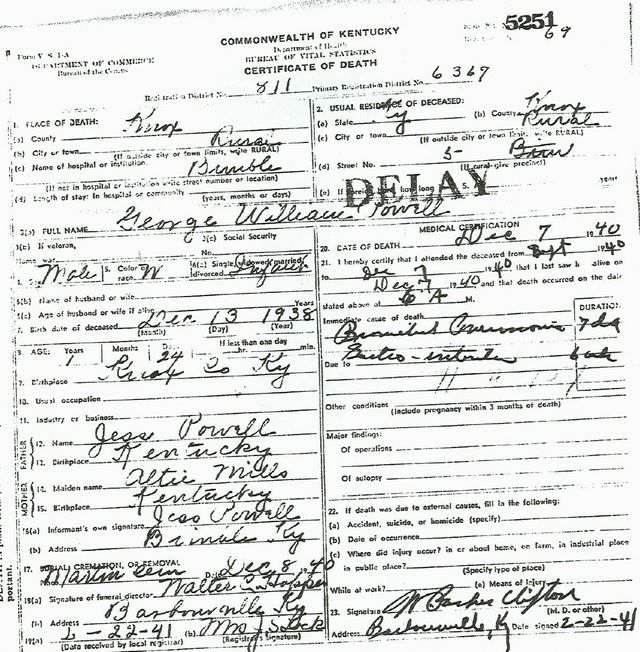 5251
69
Form V. S. 1-A
DEPARTMENT OF COMMERCE
Bureau of the Census
COMMONWEALTH OF KENTUCKY
Department of Health
BUREAU OF VITAL STATISTICS
CERTIFICATE OF DEATH
Registration District No. 811
Primary Registration District No. 6367
1. PLACE OF DEATH:
(a) County Knox
(b) City or town Rural
(If outside city or town limits, write RURAL)
(c) Name of hospital or institution: Bimble
(If not in hospital or institution write street number or location)
(d) Length of stay: In hospital or community (years, months or days)
2. USUAL RESIDENCE OF DECEASED:
(a) State Ky (b) County Knox
(c) City or town Rural
(If outside city or town limits, write RURAL)
(d) Street No. 5
(If rural give precinct)
DELAY
3(a) FULL NAME George William Powell
3(b) If veteran, name war
3(c) Social Security No.
4. Sex Male 5. Color or race W 6(a) Single, widowed, married, divorced
6(b) Name of husband or wife
6(c) Age of husband or wife if alive Years
7. Birth date of deceased Dec 13 1938
(Month) (Day) (Year)
8. AGE: Years 1 Months Days 24 If less than one day hr. min.
9. Birthplace Knox Co Ky
10. Usual occupation
11. Industry or business
FATHER
12. Name Jess Powell
13. Birthplace Kentucky
MOTHER
14. Maiden name Altie Mills
15. Birthplace Kentucky
16(a) Informant's own signature Jess Powell
(b) Address Bimble Ky
17. BURIAL, CREMATION, OR REMOVAL
Dec 8, 1940
18(a) Signature of funeral director Walter Hopper
(b) Address Barbourville Ky
19(a) 2-22-41 (b)
(Date received by local registrar) (Registrar's signature)
MEDICAL CERTIFICATION
20. DATE OF DEATH Dec 7 1940
21. I hereby certify that I attended the deceased from Sept 1940
to Dec 7 1940 that I last saw h alive on
Dec 7 1940 and that death occurred on the date
stated above at 6 A M.
DURATION
Immediate cause of death
Bronchial Pneumonia 7 da
Due to
Other conditions (include pregnancy within 3 months of death)
Major findings:
Of operations
Of autopsy
22. If death was due to external causes, fill in the following:
(a) Accident, suicide, or homicide (specify)
(b) Date of occurrence
(c) Where did injury occur? in or about home, on farm, in industrial place
in public place?
(Specify type of place)
While at work? (e) Means of Injury
23. Signature W Parker Clifton
(M. D. or other)
Address Barbourville, Ky Date signed 2-22-41